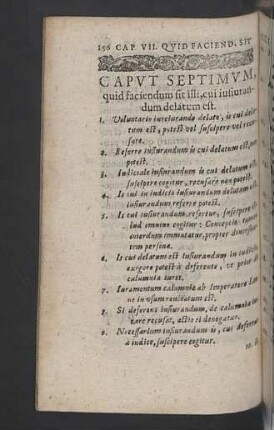 156 CAP. VII. QUID FACIEND. SIT
CAPVT SEPTIMVM,
quid faciendum sit illi, cui iusiuran-
dum delatum est.
1. Voluntario iureiurando delato, is cui dela-
tum est, potest vel suscipere vel recu-
sare.
2. Referre iusiurandum is cui delatum est, non
potest.
3. Iudiciale iusiurandum is cui delatum est,
suscipere cogitur, recusare non potest.
4. Is cui in iudicio iusiurandum delatum est
iusiurandum referre potest.
5. Is cui iusiurandum refertur, suscipere
id omnino cogitur: Conceptio
immutatur, propter diuersita-
tem personæ.
6. Is cui delatum est iusiurandum in iudicio
exigere potest à deferente, ut prior de
calumnia iuret.
7. Iuramentum calumniæ ab imperatore Leo-
ne in usum reuocatum est.
8. Si deferens iusiurandum, de calumnia iu-
rare recuset, actio ei denegatur.
9. Necessarium iusiurandum is, cui defertur
à iudice, suscipere cogitur.